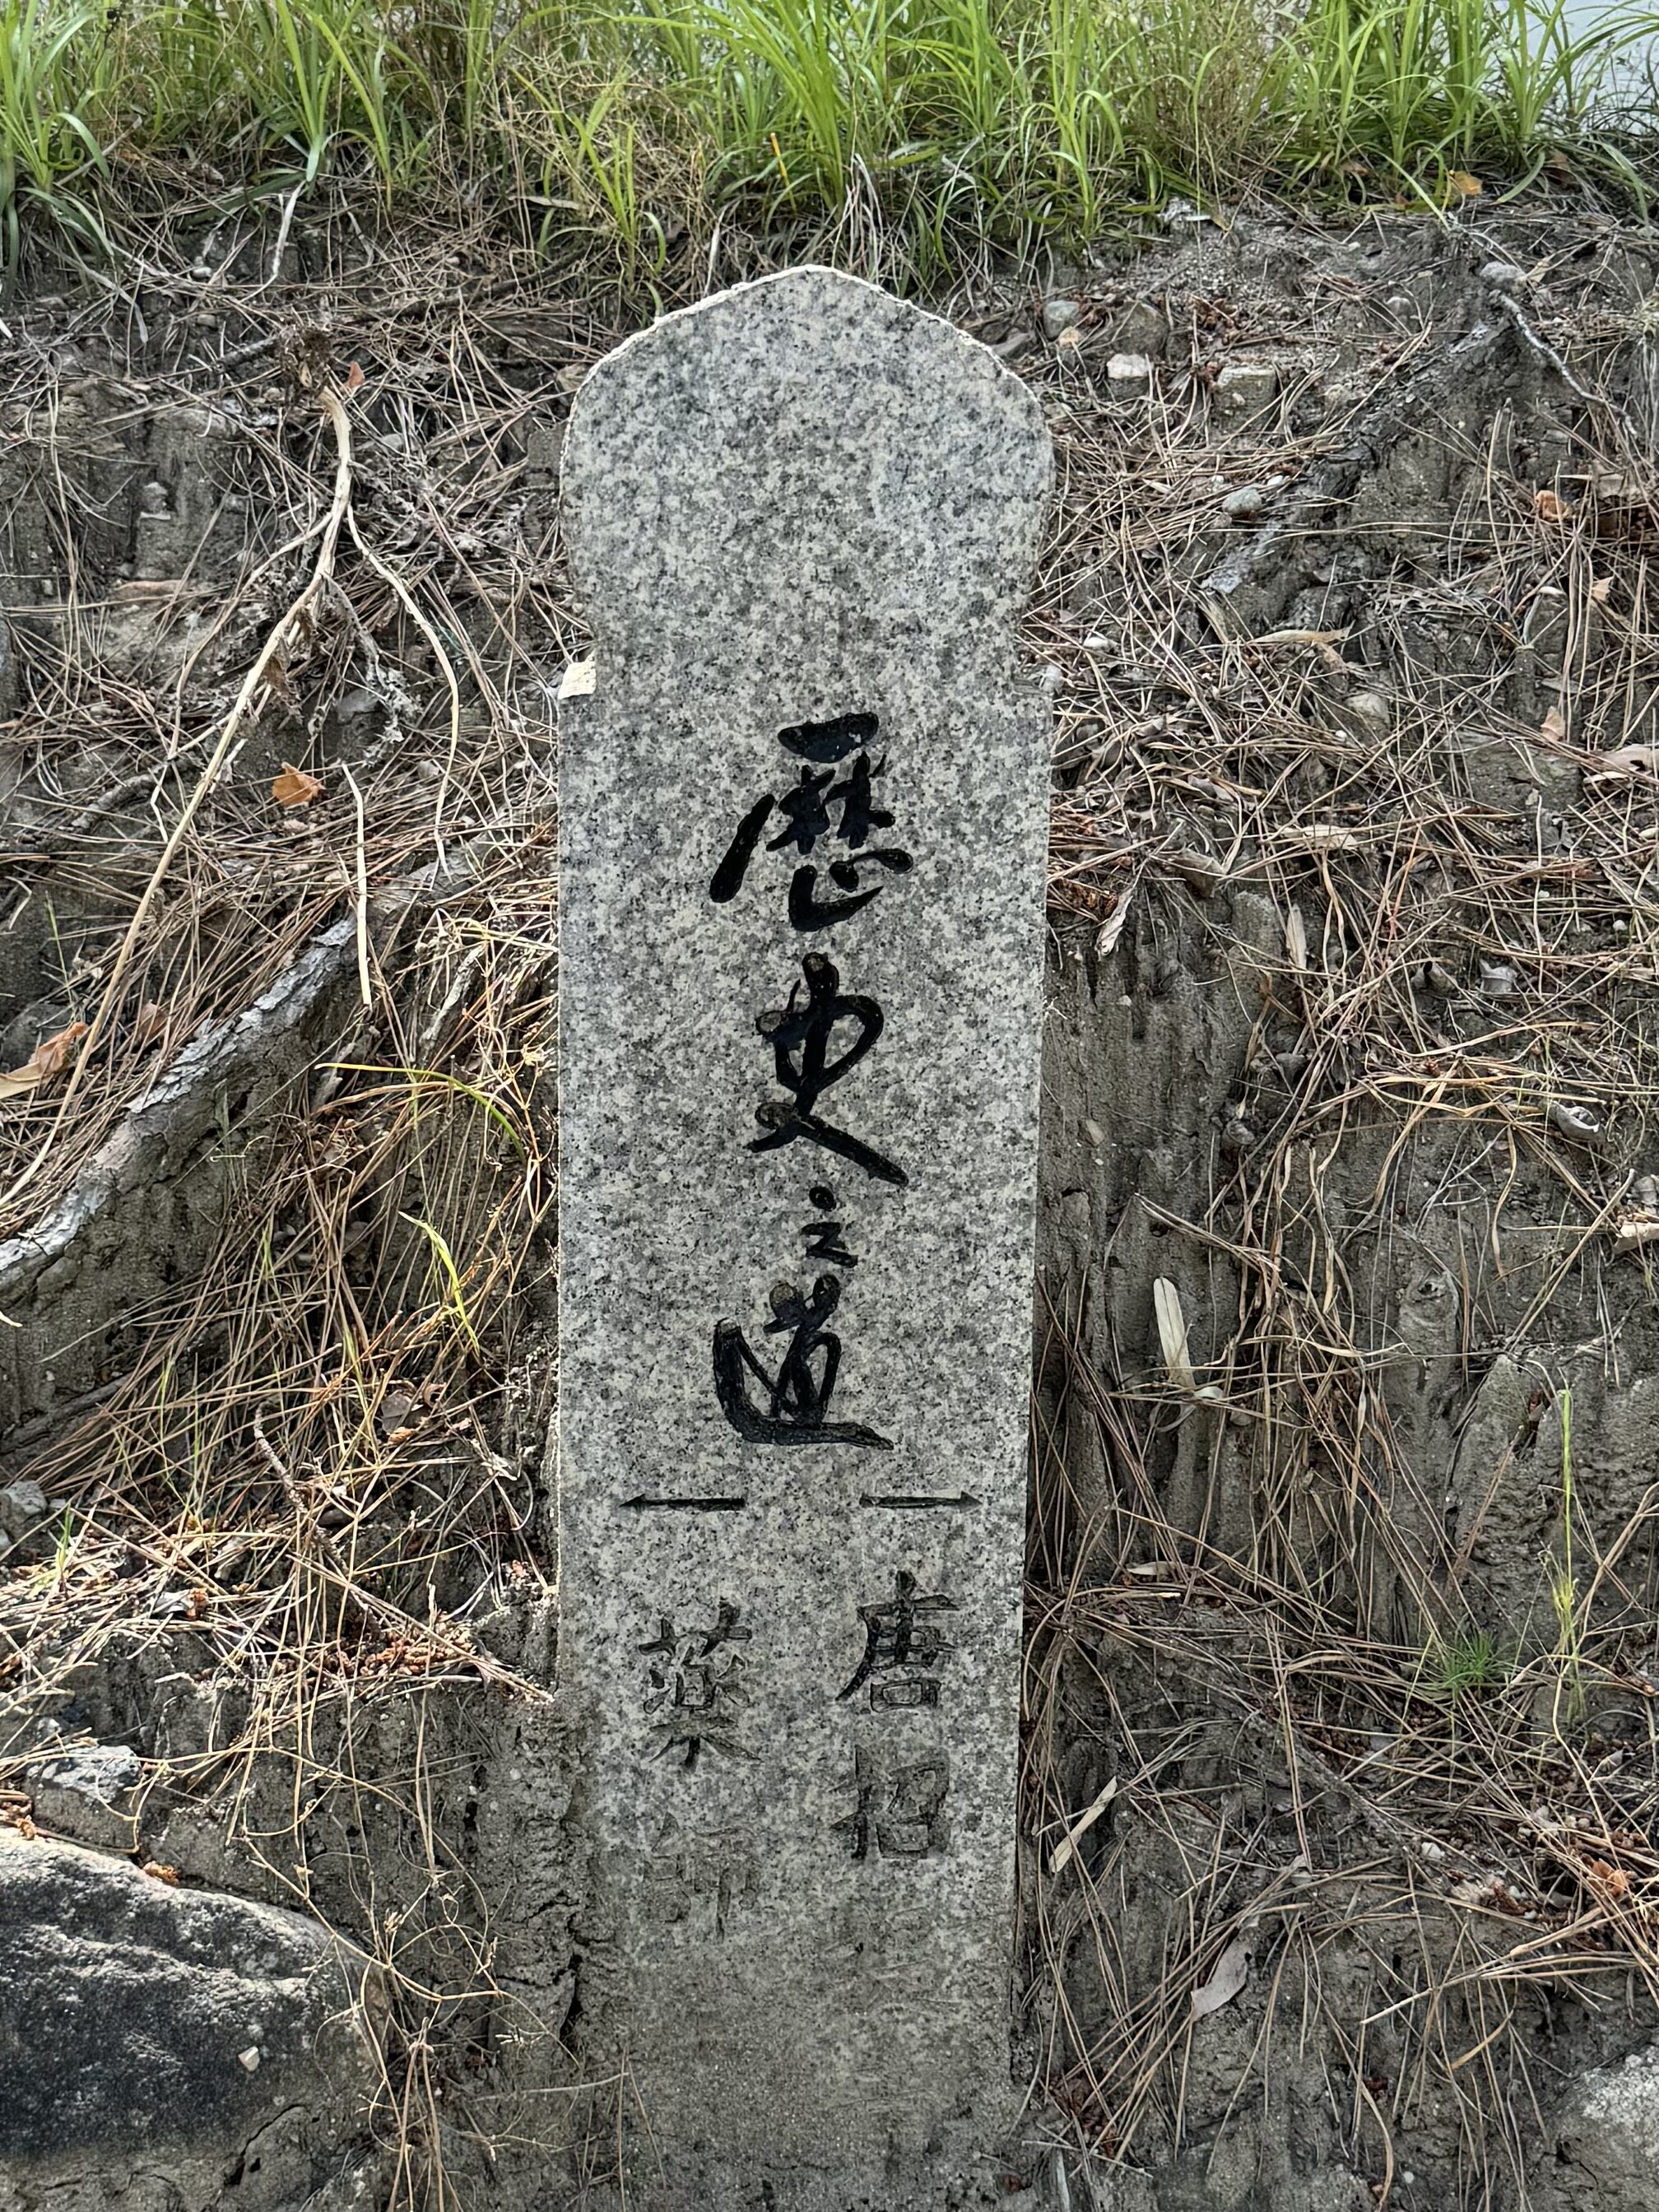 歴史之道
← →
唐招
薬師